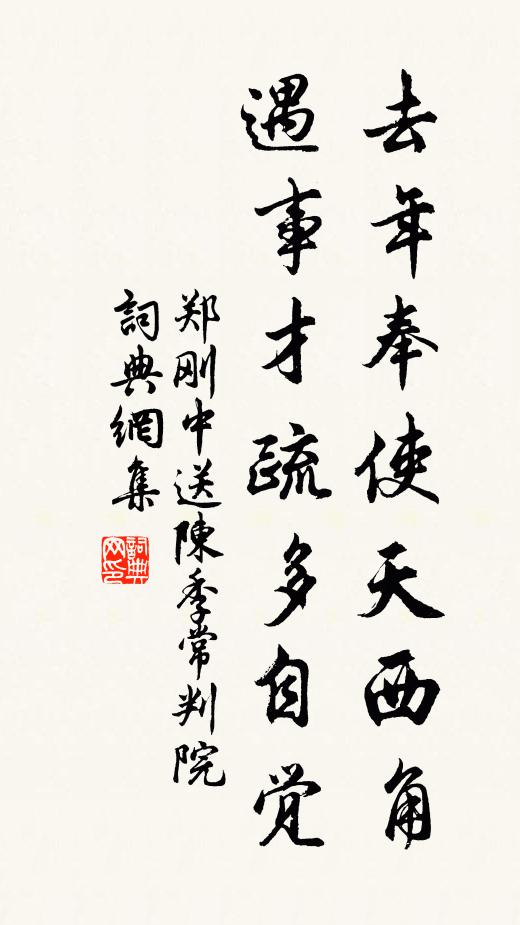 去年奉使天西角
遇事才疏多自觉
郑刚中送陳季常判院
詞典網集
詞典网印